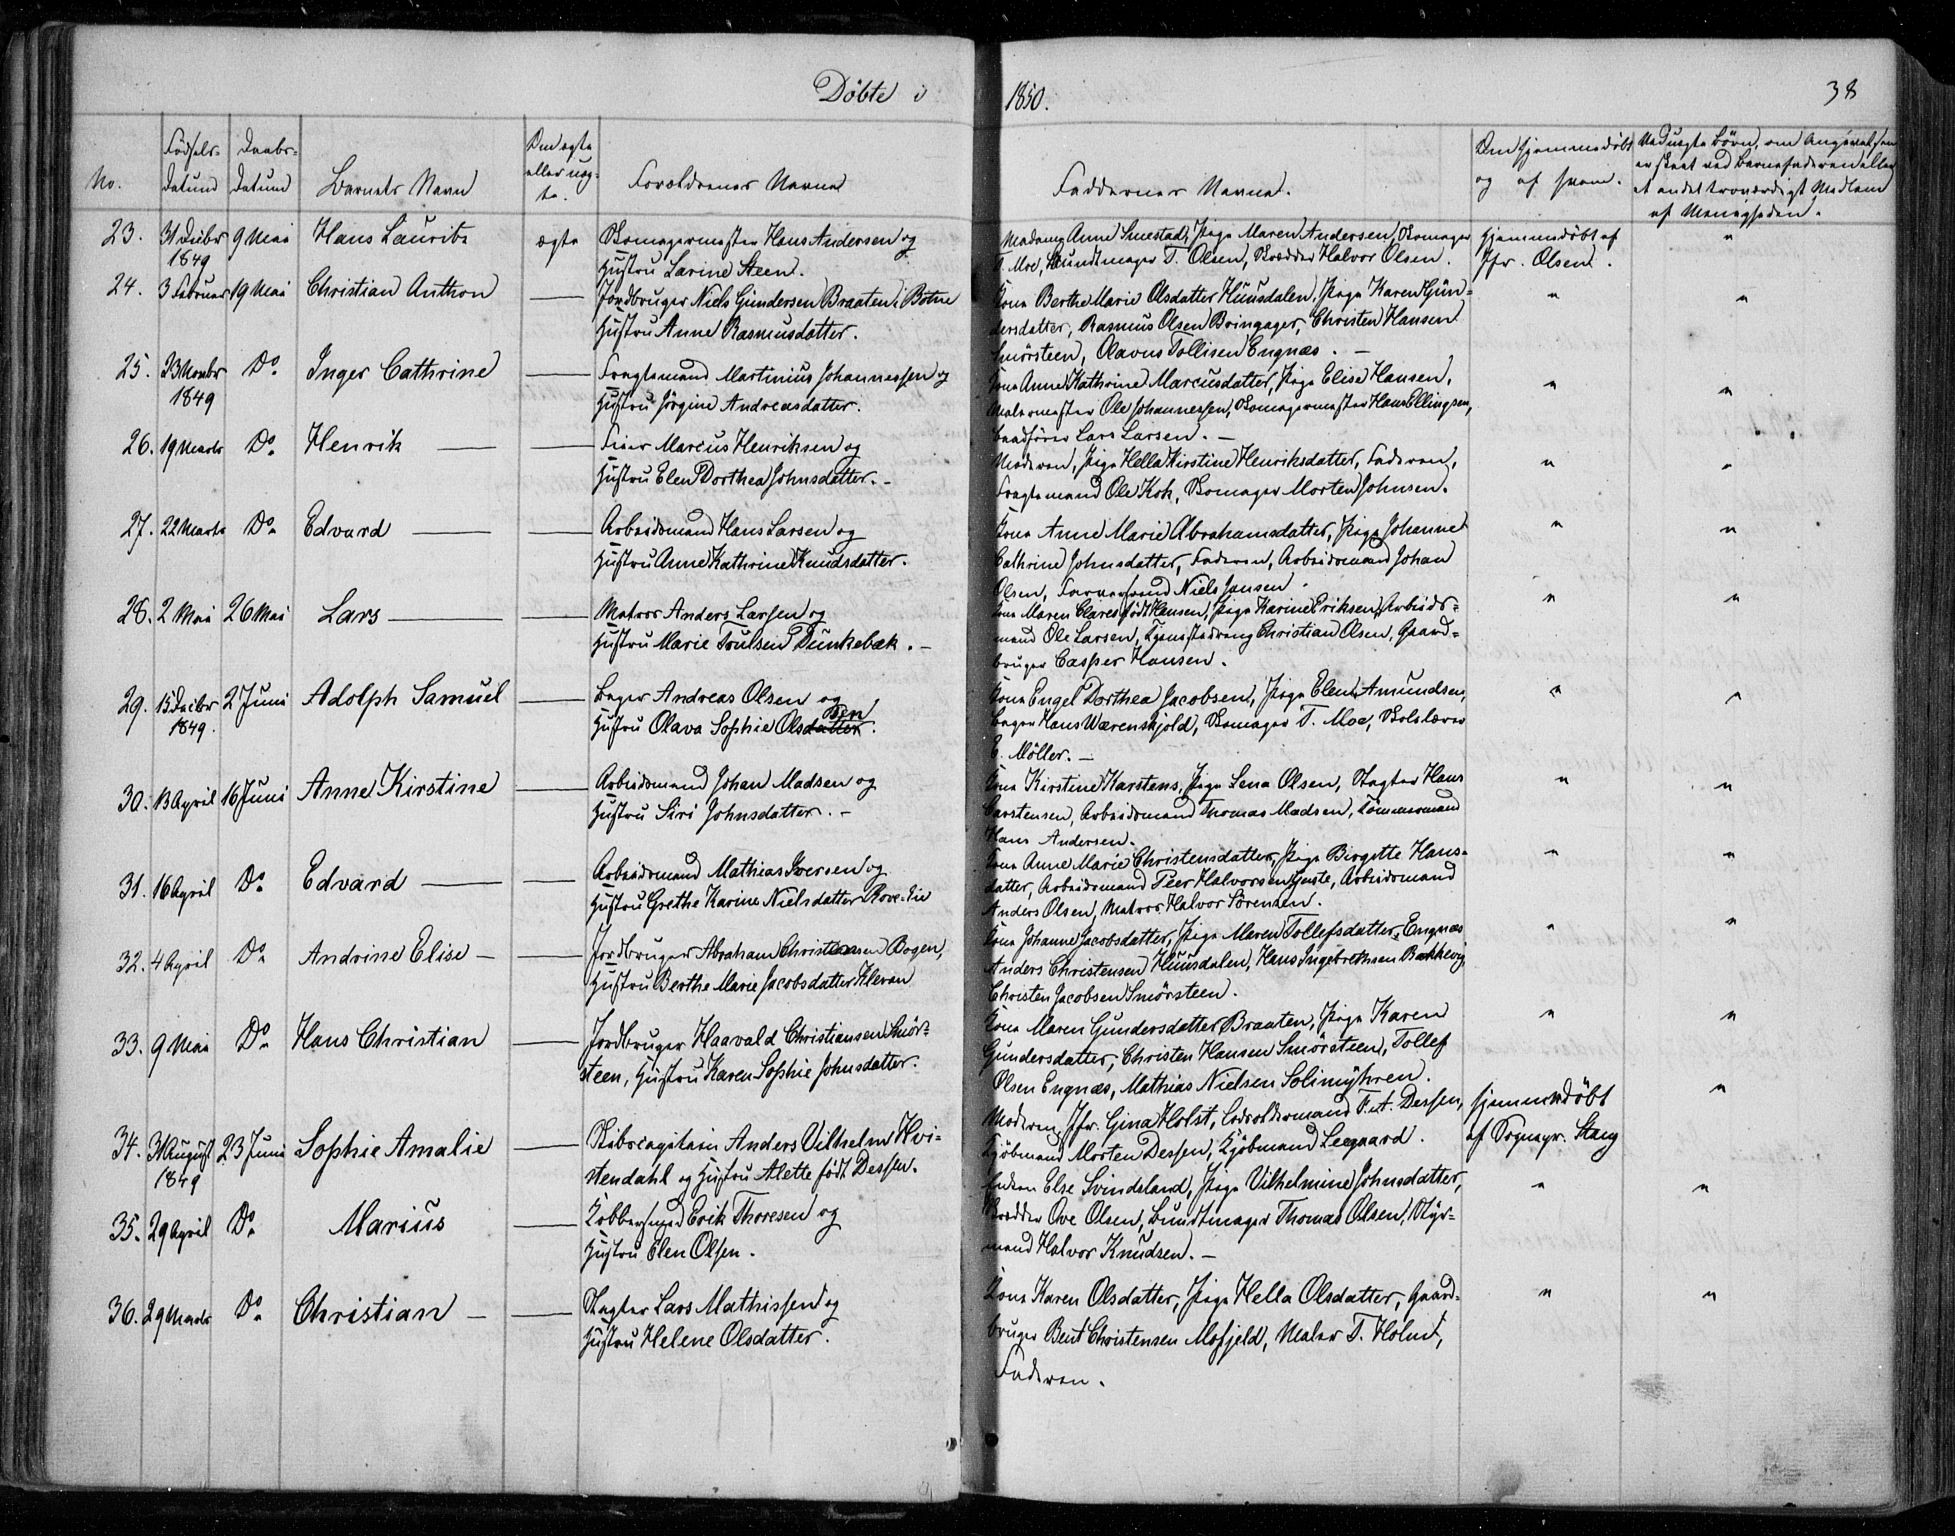 Döbte i 1850. 38
No. Födsels-Datum Daabs-Datum Barnets Navn Om ægte eller uægte. Forældrenes Navne Faddernes Navne. Om hjemmedöbt og af hvem. Ved uægte Börn, om Angivelsen er skeet ved Barnefaderen eller et andet troværdigt Medlem af Menigheden.
23. 31 Decbr 1849 9 Mai Hans Laurits ægte Skomagermester Hans Andersen og
Hustru Larine Steen.
Madame Anne Smestad, Pige Maren Andersen, Skomager
T. Moe, Bundtmager T. Olsen, Skrædder Halvor Olsen.
Hjemmedöbt af
Jfr. Olsen. "
24. 3 Februar 19 Mai Christian Anthon — Jordbruger Niels Gundersen Braaten i Botne
Hustru Anne Rasmusdatter.
Kone Berthe Marie Olsdatter Huusdalen, Pige Karen Gun-
dersdatter, Rasmus Olsen Bringager, Christen Hansen
Smörsteen, Olavus Tollisen Engnæs. — " "
25. 23 Novbr 1849 Do. Inger Cathrine — Fragtemand Martinius Johannessen og
Hustru Jörgine Andreasdatter.
Kone Anne Kathrine Marcusdatter, Pige Elise Hansen,
Malermester Ole Johannessen, Skomagermester Hans Ellingsen,
Baadförer Lars Larsen. — " "
26. 19 Marts Do. Henrik — — Feier Marcus Henriksen og
Hustru Elen Dorthea Johnsdatter. -
Moderen, Pige Hella Kirstine Henriksdatter, Faderen,
Fragtemand Ole Koh, Skomager Morten Johnsen. " "
27. 22 Marts Do. Edvard — — Arbeidsmand Hans Larsen og
Hustru Anne Kathrine Knudsdatter.
Kone Anne Marie Abrahamsdatter, Pige Johanne
Cathrine Johnsdatter, Faderen, Arbeidsmand Johan
Olsen, Niels Jansen. " "
28. 2 Mai 26 Mai Lars — — Matros Anders Larsen og
Hustru Marie Trulsen Dunkebæk. -
Kone Maren Claresfödt Hansen, Pige Karine Eriksen, Arbeids-
mand Ole Larsen, Tjenestedreng Christian Olsen, Gaard-
bruger Casper Hansen. " "
29. 15 Decbr 1849. 2 Juni Adolph Samuel — Bager Andreas Olsen og
Hustru Olava Sophie Olsdatter sen.
Kone Engel Dorthea Jacobsen, Pige Elen Amundsen,
Bager Hans Wærenskjold, Skomager T. Moe, Skolelærer
E. Möller. — " "
30. 13 April 16 Juni Anne Kirstine — Arbeidsmand Johan Madsen og
Hustru Siri Johnsdatter. -
Kone Kirstine Karstens, Pige Lena Olsen, Slagter Hans
Carstensen, Arbeidsmand Thomas Madsen, Tömmermand
Hans Andersen. " "
31. 16 April Do. Edvard — — Arbeidsmand Mathias Iversen og
Hustru Grethe Karine Nielsdatter Rove-Lie
Kone Anne Marie Christensdatter, Pige Birgitte Hans-
datter, Arbeidsmand Peer Halvorsen Guste, Arbeidsmand
Anders Olsen, Matros Halvor Sörensen. " "
32. 4 April Do. Andrine Elise — — Jordbruger Abraham Christensen Bogen,
Hustru Berthe Marie Jacobsdatter Kleven
Kone Johanne Jacobsdatter, Pige Maren Tollefsdatter Engnæs
Anders Christensen Huusdalen, Hans Ingebrethsen Bakkevig,
Christen Jacobsen Smörsteen. " "
33. 9 Mai Do. Hans Christian — Jordbruger Haavald Christiansen Smör-
steen, Hustru Karen Sophie Johnsdatter.
Kone Maren Gundersdatter Braaten, Pige Karen
Gundersdatter, Christen Hansen Smörsteen, Tollef
Olsen Engnæs, Mathias Nielsen Solimyhren. " "
34. 31 August 1849 23 Juni Sophie Amalie — Skibscapitain Anders Vilhelm Hvi-
stendahl og Hustru Alette födt Dessen.
Moderen, Jfr. Gina Holst, Lodsoldermand F. A. Dessen,
Kjöbmand Morten Dessen, Kjöbmand Leegaard.
Hjemmedöbt
af Sognepr. Stang "
35. 29 April Do. Marius — Kobbersmed Erik Thoresen og
Hustru Elen Olsen.
Enken Else Svindsland, Pige Vilhelmine Johnsdatter,
Skrædder Ove Olsen, Bundtmager Thomas Olsen, Styr-
mand Halvor Knudsen. — " "
36. 29 Marts Do. Christian — — Slagter Lars Mathissen og
Hustru Helene Olsdatter.
Kone Karen Olsdatter, Pige Hella Olsdatter, Gaard-
bruger Bent Christensen Mofjeld, Maler T. Holmt,
Faderen. " "